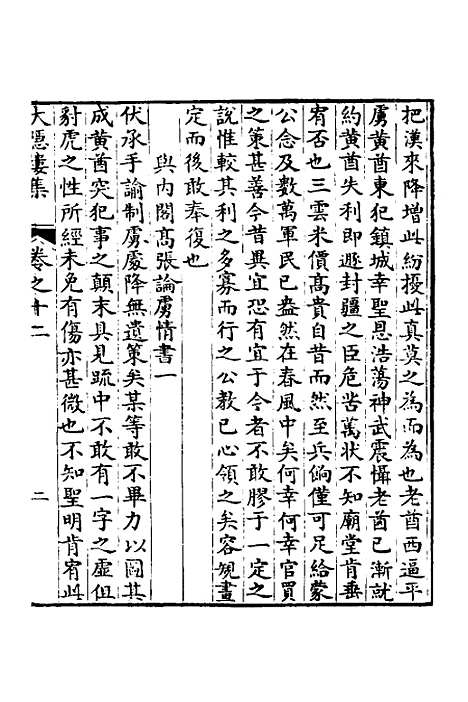 把漢來降增此紛擾此真莫之為而為也老酋西逼平
虜黃酋東犯鎮城幸聖恩浩蕩神武震懾老酋已漸就
約黃酋失利即遯封疆之臣危苦萬狀不知廟堂肯垂
宥否也三雲米價高貴自昔而然至兵餉僅可足給蒙
公念及數萬軍民已盎然在春風中矣何幸何幸官買
之策甚善今昔異宜恐有宜于今者不敢膠于一定之
說惟較其利之多寡而行之公教已心領之矣容規畫
定而後敢奉復也
與內閣高張論虜情書一
伏承手諭制虜處降無遺策矣某等敢不畢力以圖其
成黃酋突犯事之顛末具見疏中不敢有一字之虛但
豺虎之性所經未免有傷亦甚微也不知聖明肯宥此
大隱樓集
卷之十二
二